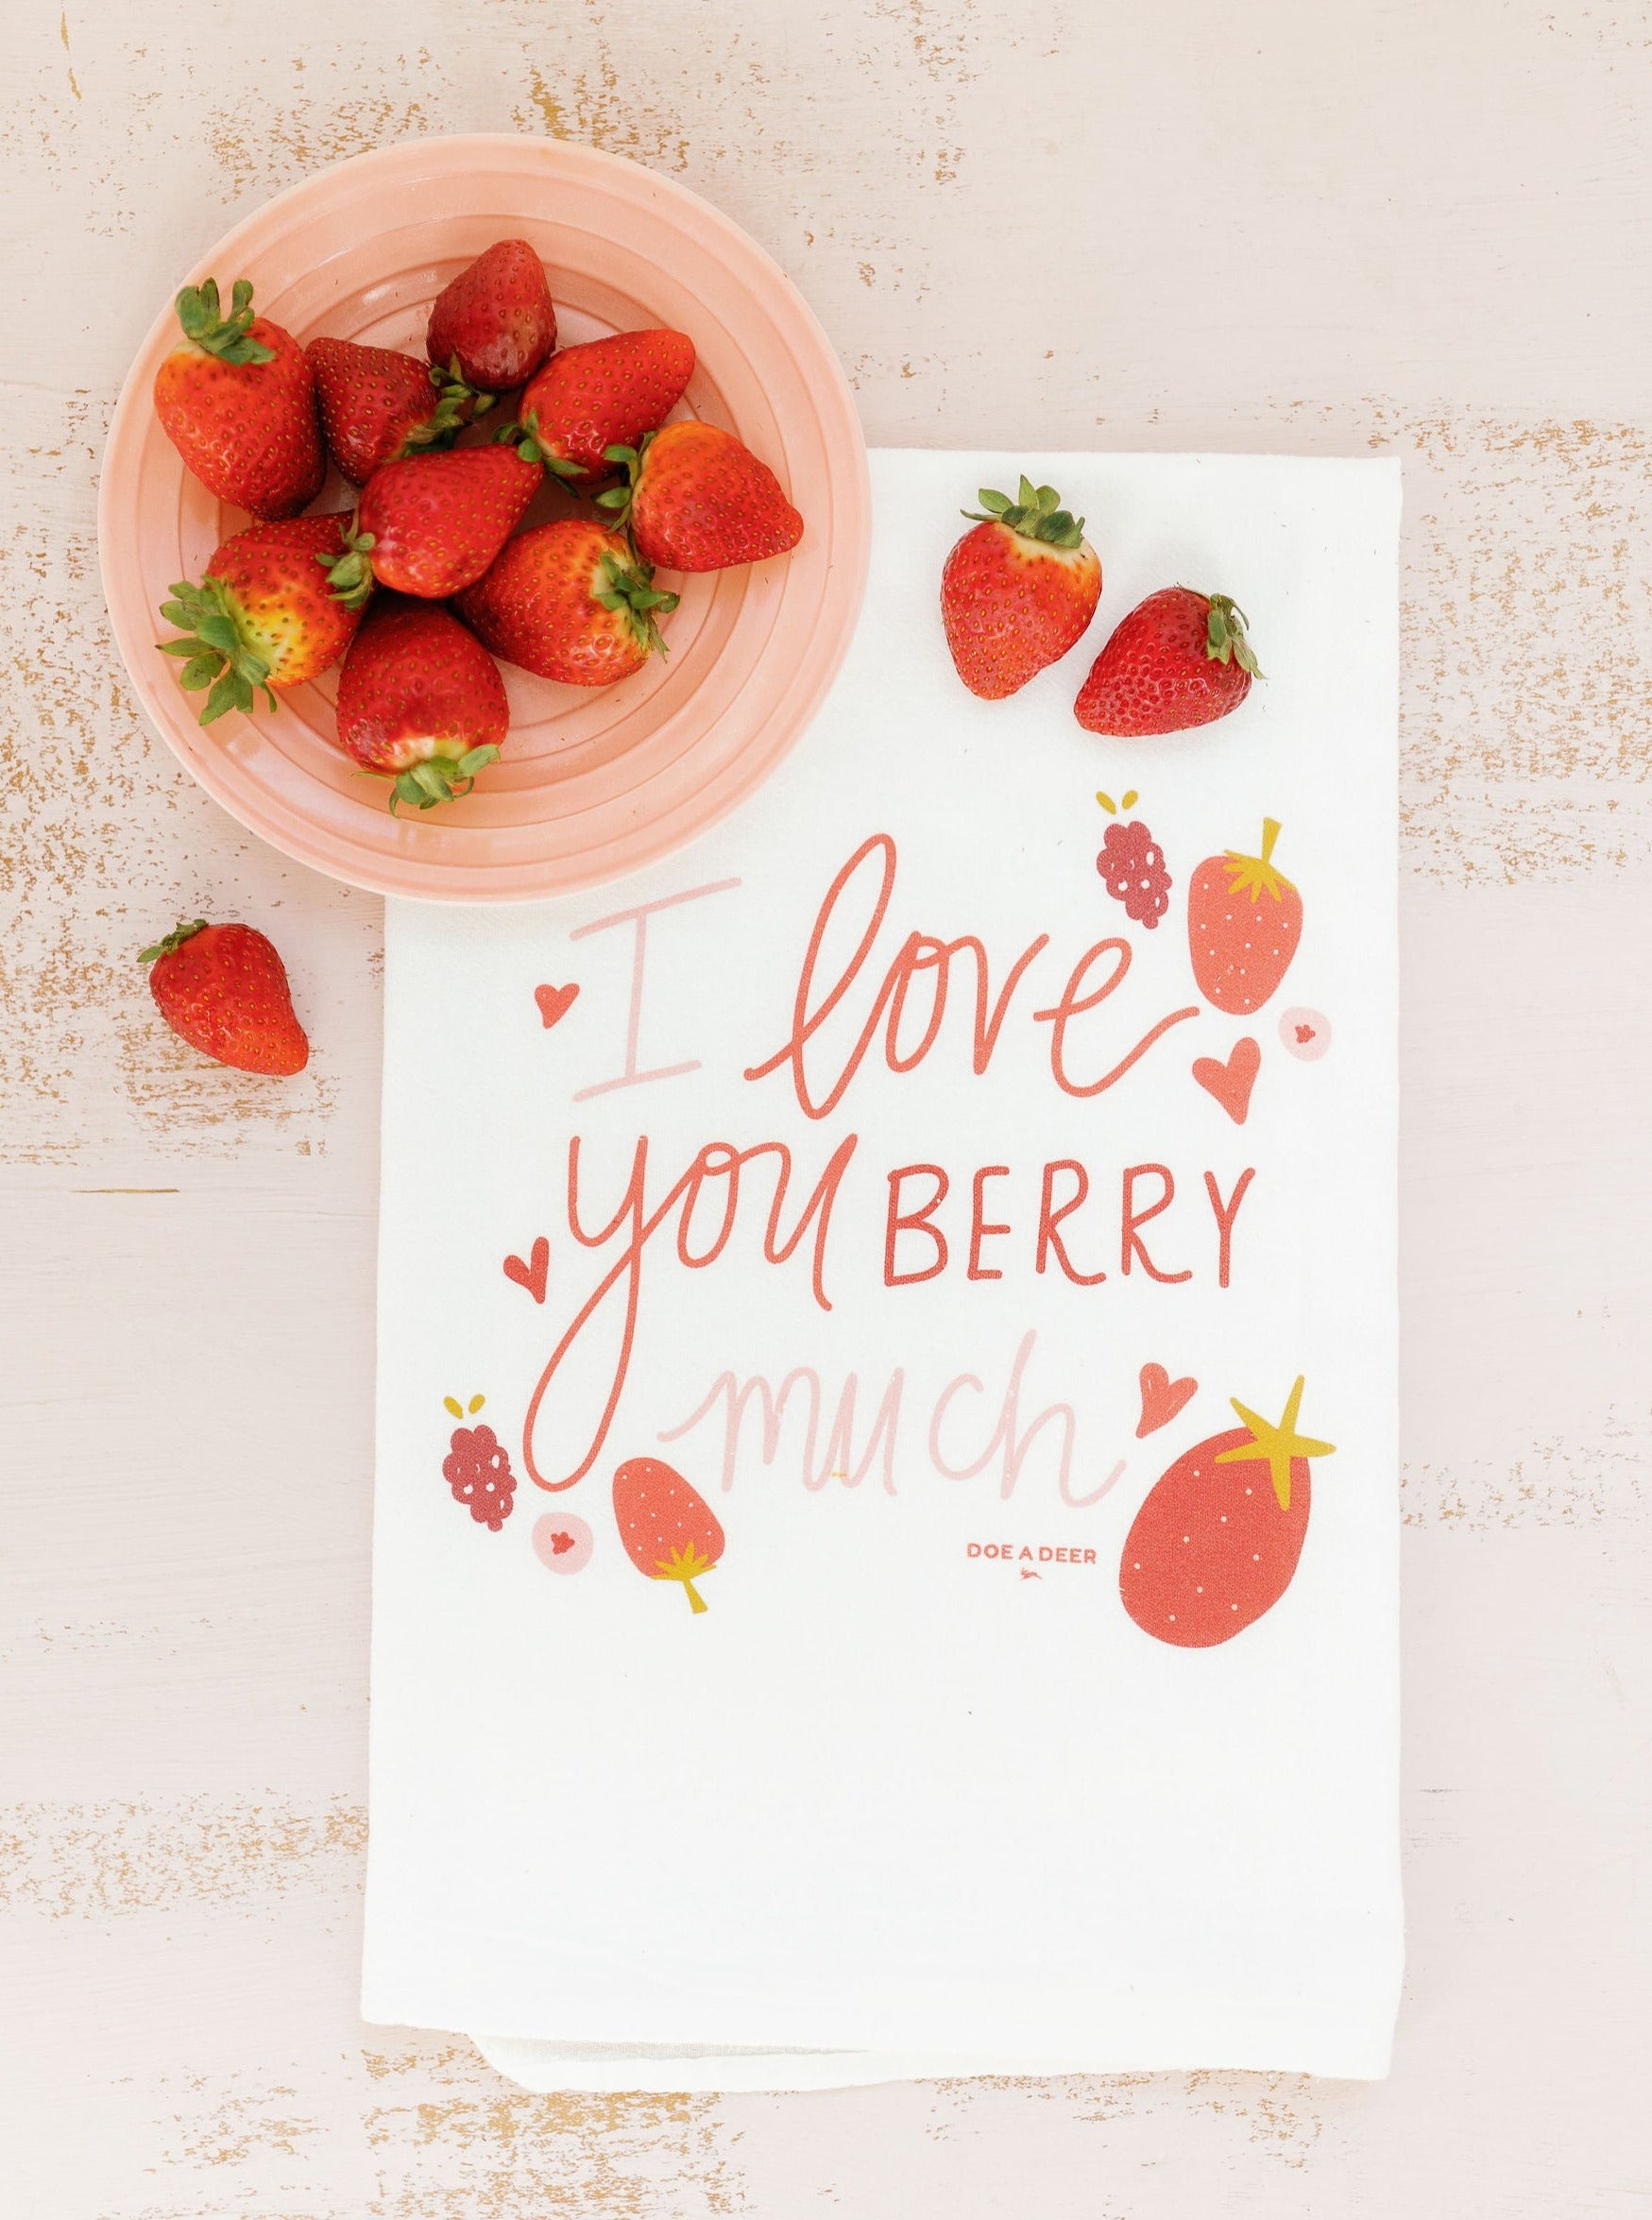 I love
you BERRY
much
DOE A DEER